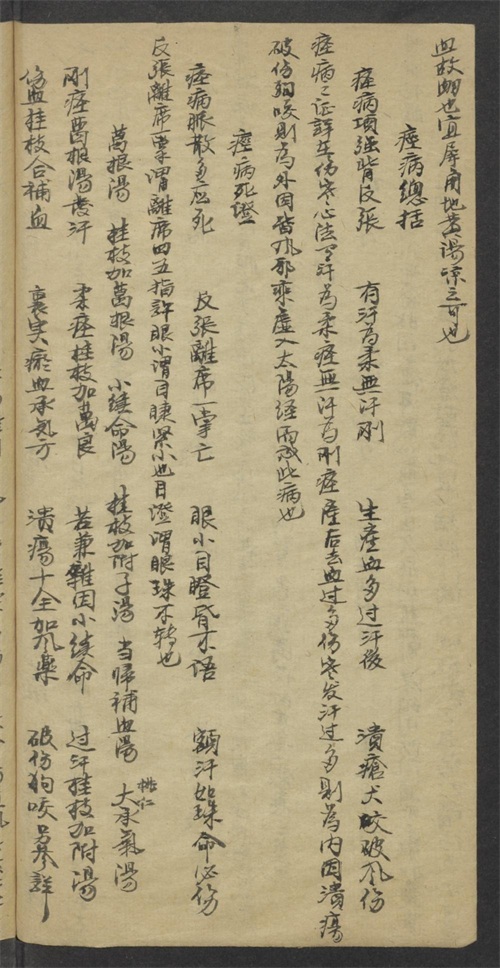 血故也宜犀角地黃湯涼之可也
痙病總括
痙病項强背反張 有汗為柔無汗刚 生産血多过汗後 潰瘡犬咬破风伤
痙病之证詳在伤寒心法有汗為柔痙無汗為刚痙産后去血过多伤寒发汗过多則為内因潰瘍
破伤狗咬則為外因皆风邪乘虚入太陽经而成此病也
痙病死證
痙病脹散多應死 反張離席一掌亡 眼小目瞪昏不语 額汗如珠命必伤
反張離席一掌谓離席四五指許眼小谓目睫紧小也目瞪谓眼珠不转也
萬根湯 桂枝加萬根湯 小续命湯 桂枝加附子湯 当帰補血湯 桃仁大承氣湯
刚痙葛根湯发汗 柔痙桂枝加萬良 若兼雜因小续命 过汗桂枝加附湯
伤血桂枝合補血 裏实瘀血承氣方 潰瘍十全加风藥 破伤狗咬另參詳